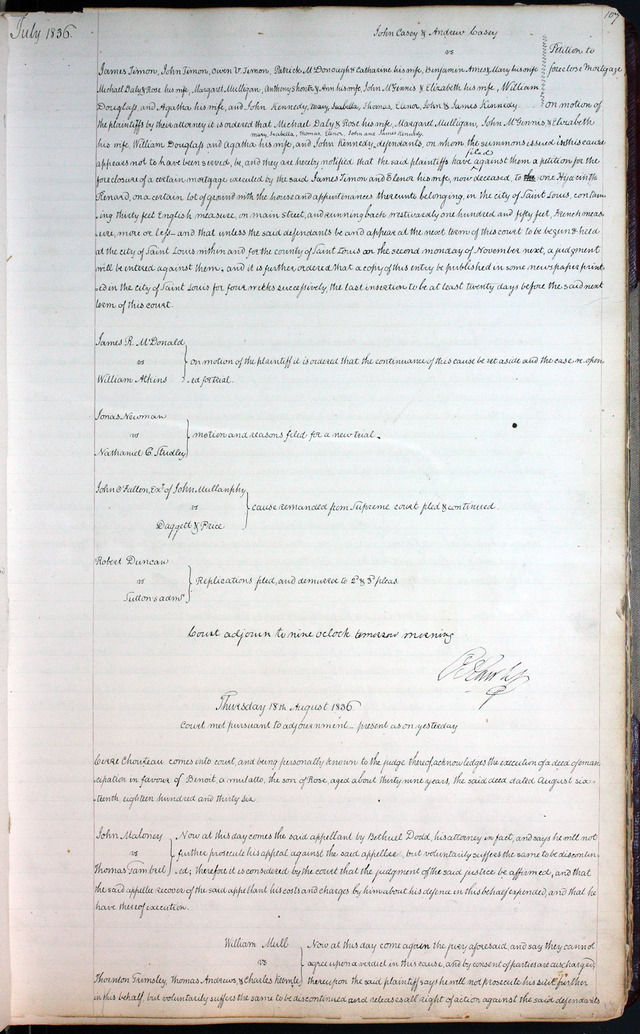 107
July 1836.
John Casey & Andrew Casey
vs
Petition to
foreclose mortgage
James Timon, John Timon, Owen V. Timon, Patrick McDonough & Catharine his wife, Benjamin Ames & Mary his wife
Michael Daly & Rose his wife, Margaret Mulligan, Anthony Shontz & Ann his wife, John McGennis & Elizabeth his wife, William
Douglass, and Agatha his wife, and John Kennedy, Mary, Isabella, Thomas, Elenor, John & James Kennedy. on motion of
the plaintiffs by their attorney it is ordered that Michael Daly & Rose his wife, Margaret Mulligan, John McGennis & Elizabeth
mary, Isabella, Thomas, Elenor, John and James Kennedy,
his wife, William Douglass and Agatha his wife, and John Kennedy, defendants, on whom the summons issued in this cause
appears not to have been served, be, and they are hereby notified that the said plaintiffs have filed against them a petition for the
foreclosure of a certain mortgage executed by the said James Timon and Elenor his wife, now deceased, to one Hyacinth
Renard, on a certain lot of ground with the house and appurtenances thereunto belonging, in the city of Saint Louis, contain-
ing thirty feet English measure, on main street, and running back westwardly one hundred and fifty feet, French meas
ure, more or less — and that unless the said defendants be and appear at the next term of this court to be begun & held
at the city of Saint Louis within and for the county of Saint Louis on the second monday of November next, a judgment
will be entered against them, and it is further ordered that a copy of this entry be published in some newspaper print
ed in the city of Saint Louis for four weeks successively, the last insertion to be at least twenty days before the said next
term of this court.
James R. McDonald
vs
William Atkins
on motion of the plaintiff it is ordered that the continuance of this cause be set aside and the case re open
ed for trial.
Jonas Newman
vs
Nathaniel C. Studley
motion and reasons filed for a new trial.
John O'Fallon, Exr. of John Mullanphy
vs
Daggett & Price
cause remanded from Supreme court filed & continued.
Robert Duncan
vs
Sutton's admr.
Replications filed, and demurred to 2d & 3d pleas.
Court adjourn to nine o'clock tomorrow morning
Thursday 18th August 1836
Court met pursuant to adjournment — present as on yesterday
Pierre Chouteau comes into court, and being personally known to the judge thereof, acknowledges the execution of a deed of eman
cipation in favour of Benoit, a mulatto, the son of Rose, aged about thirty nine years, the said deed dated August six-
teenth, eighteen hundred and thirty six
John Maloney
vs
Thomas Gambrel
Now at this day comes the said appellant by Bethuel Dodd, his attorney in fact, and says he will not
further prosecute his appeal against the said appellee, but voluntarily suffers the same to be discontin-
ued; therefore it is considered by the court that the judgment of the said justice be affirmed, and that
the said appellee recover of the said appellant his costs and charges by him about his defence in this behalf expended, and that he
have thereof execution.
William Mull
vs
Thornton Grimsley, Thomas Andrews, & Charles Keemle
Now at this day come again the jury aforesaid, and say they cannot
agree upon a verdict in this cause, and by consent of parties are discharged;
thereupon the said plaintiff says he will not prosecute his suit further
in this behalf but voluntarily suffers the same to be discontinued and releases all right of action against the said defendants